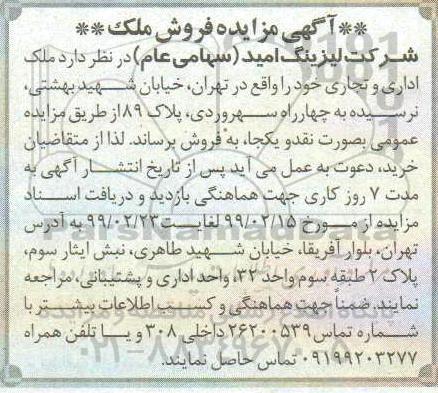 **آگهی مزایده فروش ملک**
شرکت لیزینگ امید (سهامی عام) در نظر دارد ملک
اداری و تجاری خود را واقع در تهران، خیابان شهید بهشتی،
نرسیده به چهارراه سهروردی، پلاک ۸۹ از طریق مزایده
عمومی بصورت نقد و یکجا، به فروش برساند. لذا از متقاضیان
خرید، دعوت به عمل می آید پس از تاریخ انتشار آگهی به
مدت ۷ روز کاری جهت هماهنگی بازدید و دریافت اسناد
مزایده از مورخ ۹۹/۰۲/۱۵ لغایت ۹۹/۰۲/۲۳ به آدرس
تهران، بلوار آفریقا، خیابان شهید طاهری، نبش ایثار سوم،
پلاک ۲ طبقه سوم واحد ۳۲، واحد اداری و پشتیبانی، مراجعه
نمایند. ضمناً جهت هماهنگی و کسب اطلاعات بیشتر با
شماره تماس ۲۶۲۰۰۵۳۹ داخلی ۳۰۸ و یا تلفن همراه
۰۹۱۹۹۲۰۳۲۷۷ تماس حاصل نمایند.